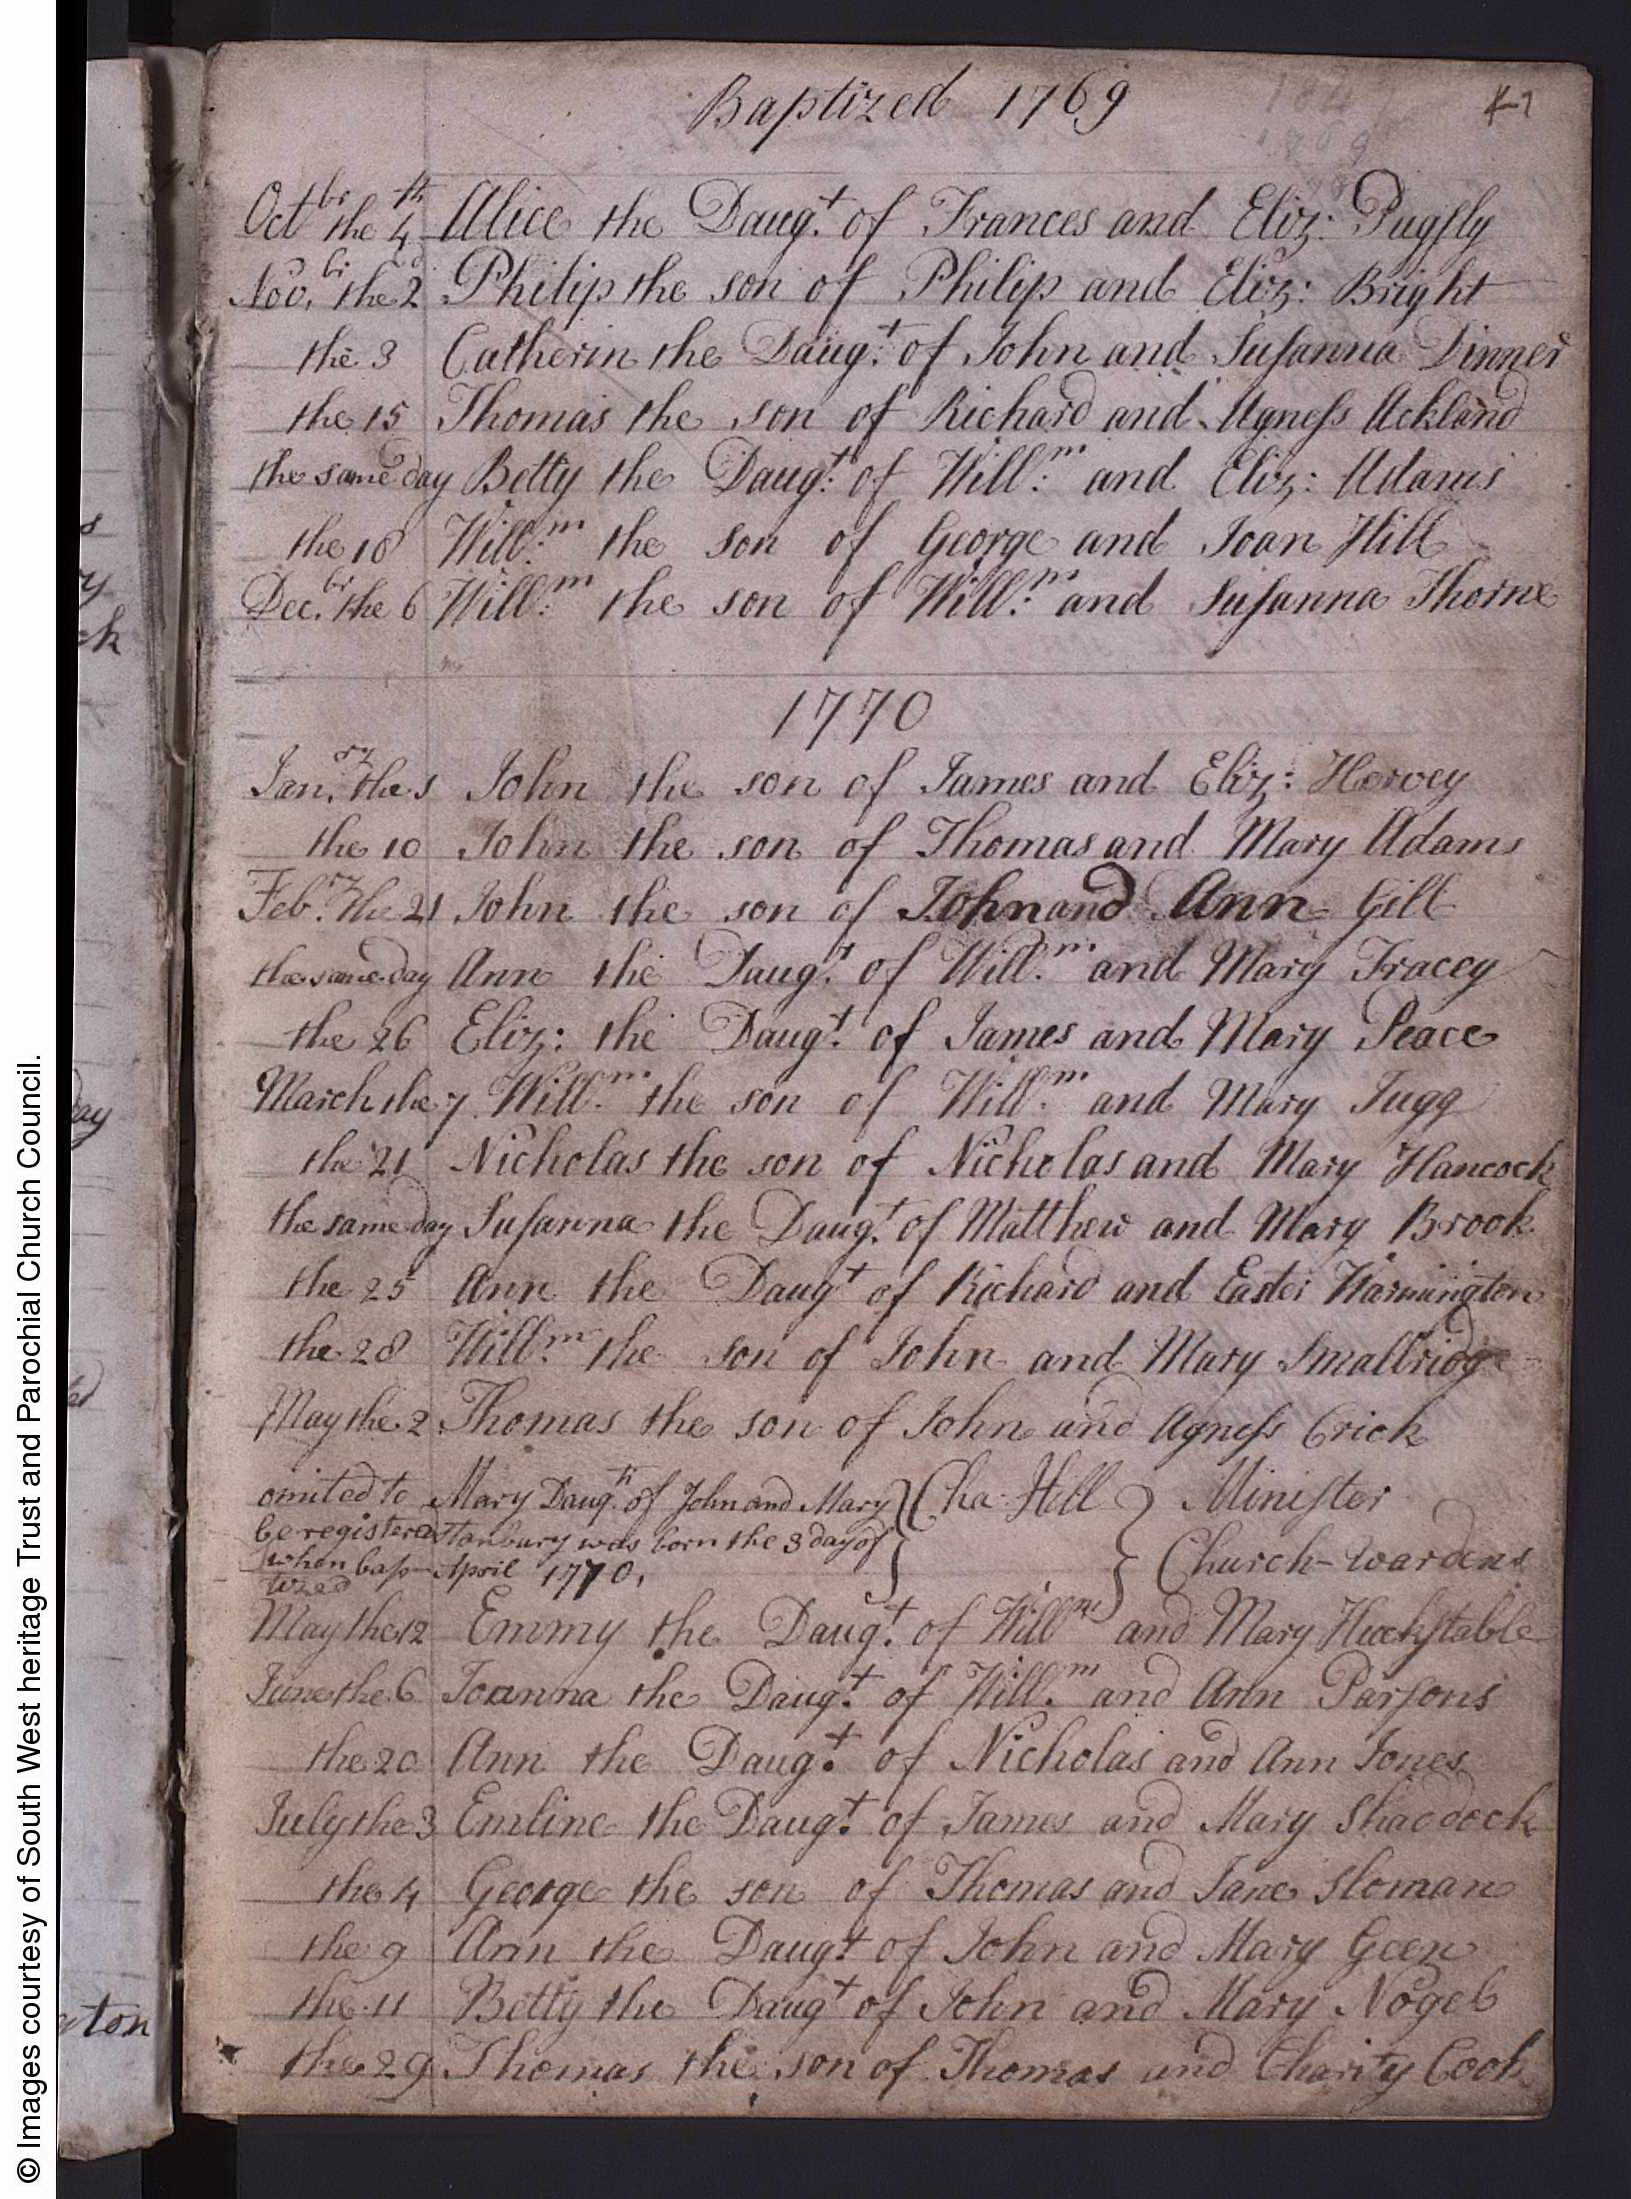 Baptized 1769
47
Octbr the 4th Alice the Daugt. of Frances and Eliz: Pugsly
Nov.br the 2d Philip the son of Philip and Eliz: Bright
the 3 Catherin the Daugt. of John and Susanna Dinner
the 15 Thomas the son of Richard and Agness Ackland
the same day Betty the Daugt. of Willm. and Eliz: Adams
the 18 Willm. the son of George and Joan Hill
Dec.br the 6 Willm. the son of Willm. and Susanna Thorne
1770
Jan.ry the John the son of James and Eliz: Harvey
the 10 John the son of Thomas and Mary Adams
Feb.ry the 21 John the son of John and Ann Gill
the same day Ann the Daugt. of Willm. and Mary Tracey
the 26 Eliz: the Daugt. of James and Mary Peace
March the 7 Willm. the son of Willm. and Mary Jugg
the 21 Nicholas the son of Nicholas and Mary Hancock
the same day Susanna the Daugt. of Matthew and Mary Brook
the 25 Ann the Daugt of Richard and Easter Warmington
the 28 Willm. the son of John and Mary Smalbridge
May the 2 Thomas the son of John and Agness Crick
omited to be registered when bap-tized Mary Daugtr. of John and Mary
Stanbury was born the 3 day of
April 1770.
Cha. Hill } Minister
} Church-wardens
May the 12 Emmy the Daugt. of Willm and Mary Huckstable
June the 6 Joanna the Daugt. of Willm. and Ann Parsons
the 20 Ann the Daugt. of Nicholas and Ann Jones
July the 3 Emline the Daugt. of James and Mary Shaddock
the 4 George the son of Thomas and Jane Sloman
the 9 Ann the Daugt of John and Mary Geen
the 11 Betty the Daugt of John and Mary Nogel
the 29 Thomas the son of Thomas and Charity Cook
© Images courtesy of South West heritage Trust and Parochial Church Council.